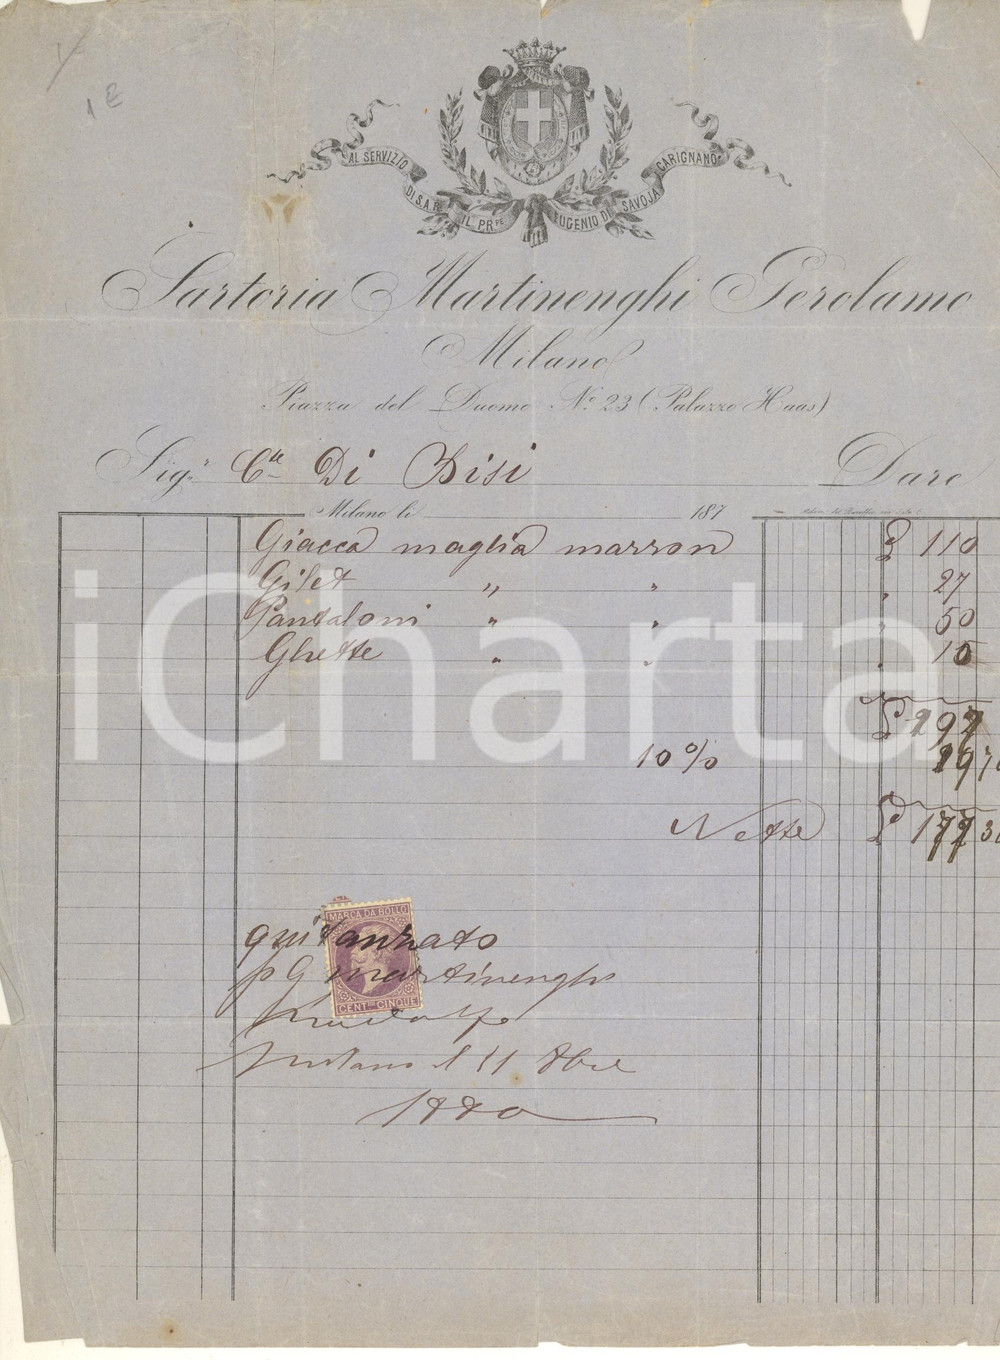 1 E
AL SERVIZIO DI S.A.R. IL PR.PE EUGENIO DI SAVOJA CARIGNANO
Sartoria Martinenghi Gerolamo
Milano
Piazza del Duomo N.º 23 (Palazzo Haas)
Sig.r C.te Di Bisi Dare
Milano li 187
Giacca maglia marron £ 110
Gilet " " " 27
Pantaloni " " " 50
Ghette " " " 10
£ 197
10 % 19 70
Netto £ 177 30
MARCA DA BOLLO
quitanzato
p G Martinenghi
CENT.MI CINQUE
Milano il 11 Xbre
1880
iCharta